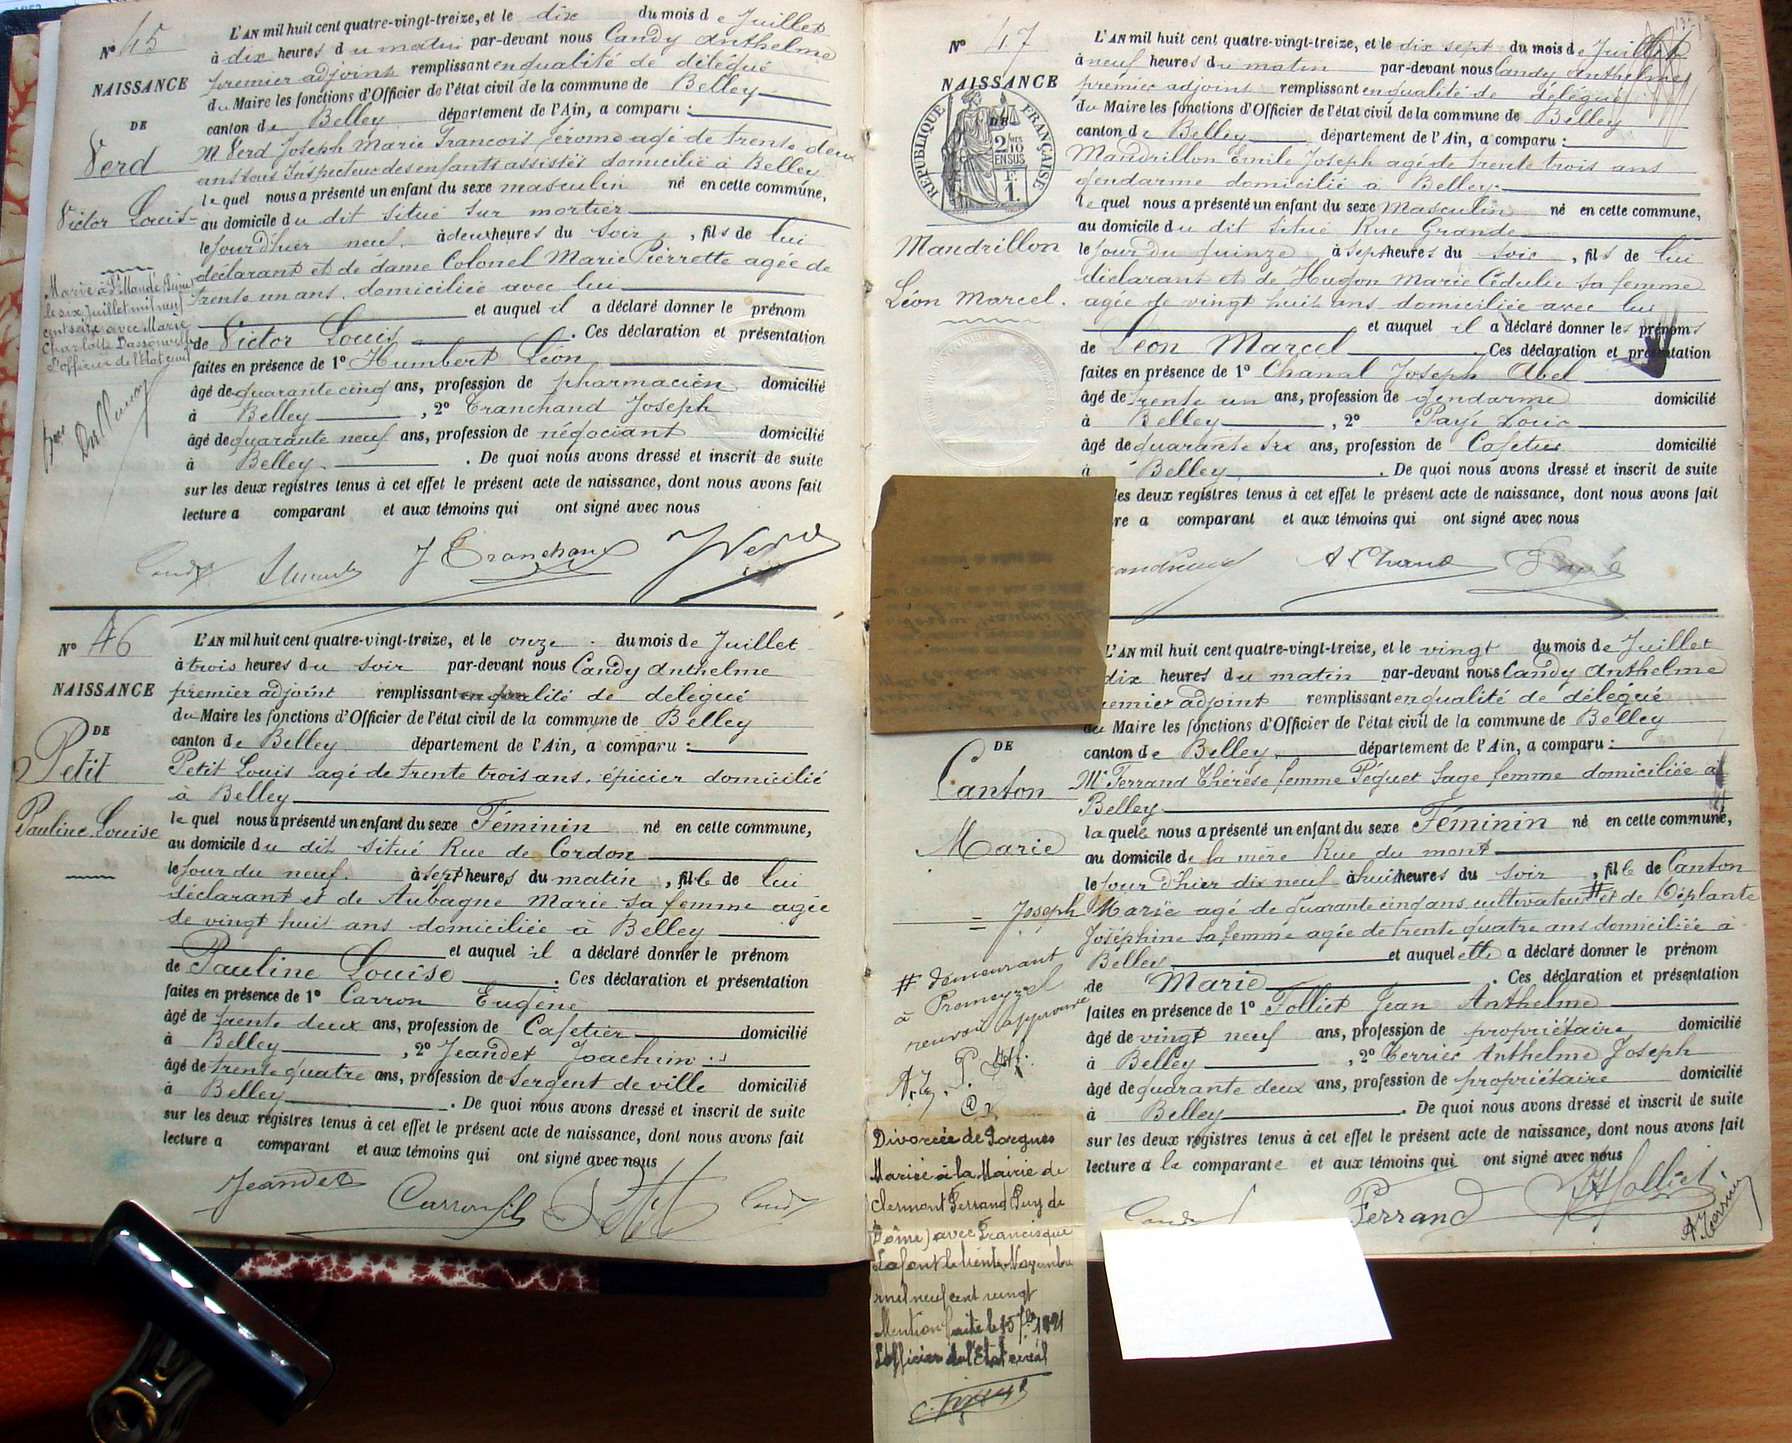 N° 45
NAISSANCE
DE
Verd
Victor Louis
L'AN mil huit cent quatre-vingt-treize, et le dix du mois de Juillet
à dix heures du matin par-devant nous Candy Anthelme
premier adjoint remplissant en qualité de délégué
du Maire les fonctions d'Officier de l'état civil de la commune de Belley
canton de Belley département de l'Ain, a comparu :
M Verd Joseph Marie Francois Jérome agé de trente deux
ans sous inspecteur des enfants assistés domicilié à Belley
lequel nous a présenté un enfant du sexe masculin né en cette commune,
au domicile du dit situé sur mortier
le jour d'hier neuf à deux heures du soir, fils de lui
déclarant et de dame Colonel Marie Pierrette agée de
trente un ans domiciliée avec lui
et auquel il a déclaré donner le prénom
de Victor Louis. Ces déclaration et présentation
faites en présence de 1° Humbert Léon
âgé de quarante cinq ans, profession de pharmacien domicilié
à Belley, 2° Tranchand Joseph
âgé de quarante neuf ans, profession de négociant domicilié
à Belley. De quoi nous avons dressé et inscrit de suite
sur les deux registres tenus à cet effet le présent acte de naissance, dont nous avons fait
lecture a comparant et aux témoins qui ont signé avec nous
Marié à St Mandé
le six Juillet mil neuf
cent seize avec Marie
Charlotte
L'officier de l'Etat civil
Candy J Tranchand J Verd
N° 46
NAISSANCE
DE
Petit
Pauline Louise
L'AN mil huit cent quatre-vingt-treize, et le onze du mois de Juillet
à trois heures du soir par-devant nous Candy Anthelme
premier adjoint remplissant en qualité de délégué
du Maire les fonctions d'Officier de l'état civil de la commune de Belley
canton de Belley département de l'Ain, a comparu :
Petit Louis agé de trente trois ans, épicier domicilié
à Belley
lequel nous a présenté un enfant du sexe Féminin né en cette commune,
au domicile du dit situé Rue de Cordon
le jour du neuf à sept heures du matin, fille de lui
déclarant et de Aubagne Marie sa femme agée
de vingt huit ans domiciliée à Belley
et auquel il a déclaré donner le prénom
de Pauline Louise. Ces déclaration et présentation
faites en présence de 1° Carron Eugène
âgé de trente deux ans, profession de Cafetier domicilié
à Belley, 2° Jeandet Joachim
âgé de trente quatre ans, profession de Sergent de ville domicilié
à Belley. De quoi nous avons dressé et inscrit de suite
sur les deux registres tenus à cet effet le présent acte de naissance, dont nous avons fait
lecture a comparant et aux témoins qui ont signé avec nous
Jeandet Carron fils Petit Candy
N° 47
NAISSANCE
DE
RÉPUBLIQUE FRANÇAISE
2/10 EN SUS
1F.
Mandrillon
Léon Marcel.
L'AN mil huit cent quatre-vingt-treize, et le dix sept du mois de Juillet
à neuf heures du matin par-devant nous Candy Anthelme
premier adjoint remplissant en qualité de délégué
du Maire les fonctions d'Officier de l'état civil de la commune de Belley
canton de Belley département de l'Ain, a comparu :
Mandrillon Emile Joseph agé de trente trois ans
gendarme domicilié à Belley
lequel nous a présenté un enfant du sexe Masculin né en cette commune,
au domicile du dit situé Rue Grande
le jour du quinze à sept heures du soir, fils de lui
déclarant et de Hugon Marie Cédulie sa femme
agée de vingt huit ans domiciliée avec lui
et auquel il a déclaré donner les prénoms
de Léon Marcel. Ces déclaration et présentation
faites en présence de 1° Chanal Joseph Abel
âgé de trente un ans, profession de gendarme domicilié
à Belley, 2° Payé Louis
âgé de quarante six ans, profession de Cafetier domicilié
à Belley. De quoi nous avons dressé et inscrit de suite
les deux registres tenus à cet effet le présent acte de naissance, dont nous avons fait
re a comparant et aux témoins qui ont signé avec nous
DE
Canton
Marie
L'AN mil huit cent quatre-vingt-treize, et le vingt du mois de Juillet
dix heures du matin par-devant nous Candy Anthelme
premier adjoint remplissant en qualité de délégué
du Maire les fonctions d'Officier de l'état civil de la commune de Belley
canton de Belley département de l'Ain, a comparu :
Me Ferrand Thérèse femme Péguet Sage femme domiciliée à
Belley
laquelle nous a présenté un enfant du sexe Féminin né en cette commune,
au domicile de la mère Rue du mont
le jour d'hier dix neuf à huit heures du soir, fille de Canton
= Joseph Marie agé de quarante cinq ans cultivateur # et de Déplante
Joséphine sa femme agée de trente quatre ans domiciliée à
Belley et auquel elle a déclaré donner le prénom
de Marie. Ces déclaration et présentation
faites en présence de 1° Folliet Jean Anthelme
âgé de vingt neuf ans, profession de propriétaire domicilié
à Belley, 2° Terrier Anthelme Joseph
âgé de quarante deux ans, profession de propriétaire domicilié
à Belley. De quoi nous avons dressé et inscrit de suite
sur les deux registres tenus à cet effet le présent acte de naissance, dont nous avons fait
lecture a la comparante et aux témoins qui ont signé avec nous
# demeurant
à
renvoi approuvé
Candy Ferrand Folliet
Divorcée de Jorgues
Mariée à la Mairie de
Clermont Ferrand (Puy de
Dôme) avec Francisque
Lafont le trente Novembre
mil neuf cent vingt
Mention faite le 15 1921
L'officier de l'Etat civil